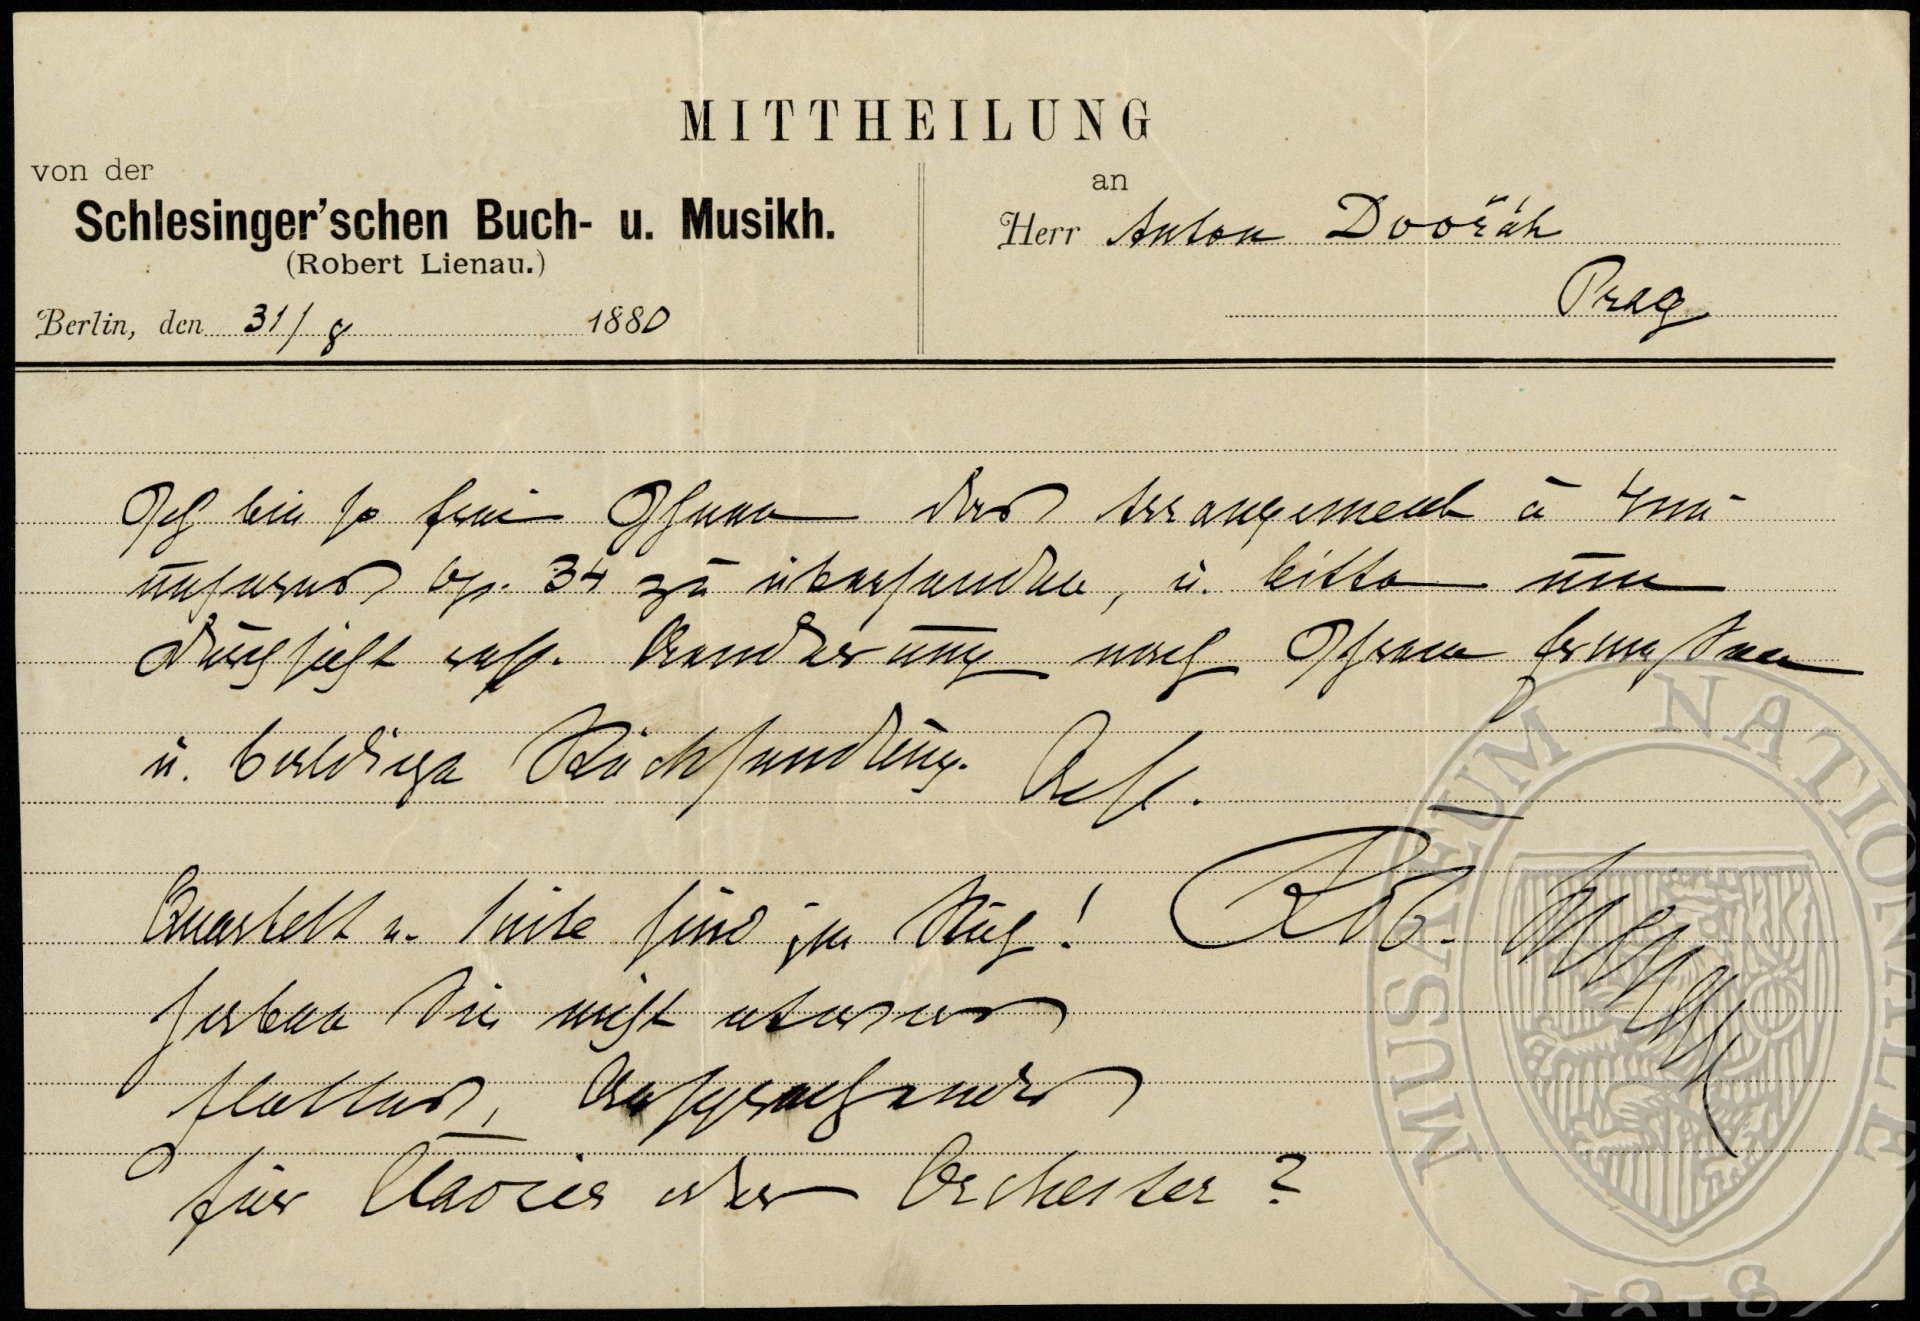 MITTHEILUNG
von der
Schlesinger'schen Buch- u. Musikh.
(Robert Lienau.)
Berlin, den 31/8 1880
an
Herr Anton Dvořák
Prag
Ich bin so frei Ihnen das Arrangement à 4m
unseres Op. 34 zu übersenden, u. bitte um
Durchsicht resp. Aenderung nach Ihrem Ermessen
u. baldige Rücksendung.
Quartett u. Suite sind im Stich! Rob. Lienau
Haben Sie nicht etwas
flottes, Ansprechendes
für Clavier oder Orchester?
MUSAEUM NATIONALE
1818